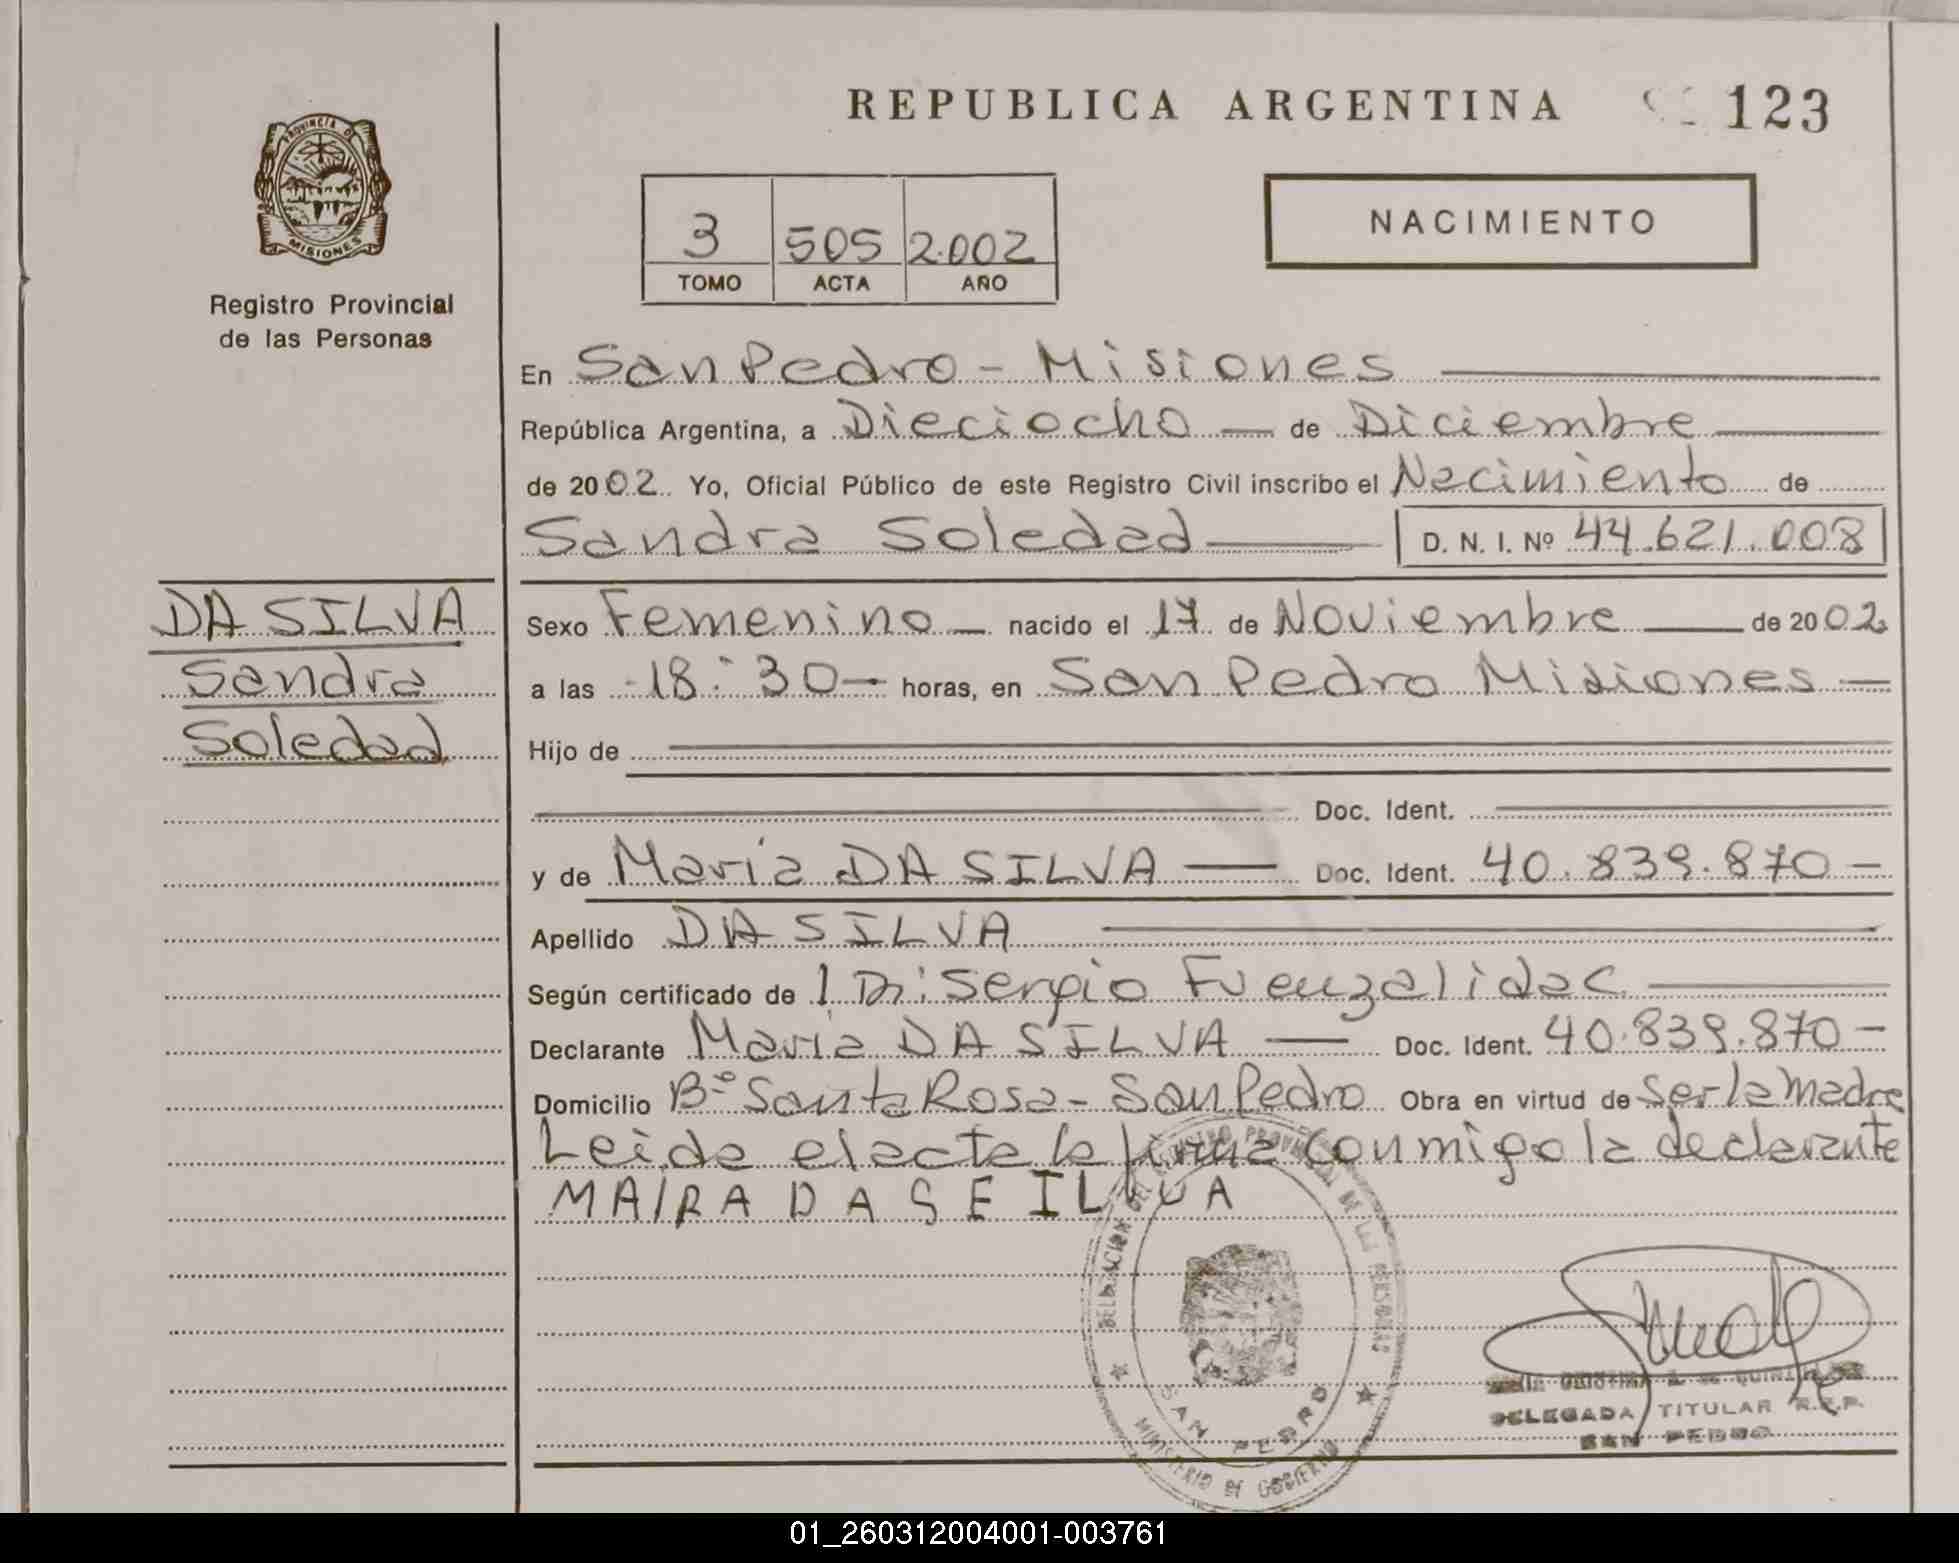 REPUBLICA ARGENTINA 123
PROVINCIA DE
MISIONES
Registro Provincial
de las Personas
3 505 2.002
TOMO ACTA AÑO
NACIMIENTO
En San Pedro - Misiones
República Argentina, a Dieciocho de Diciembre
de 2002. Yo, Oficial Público de este Registro Civil inscribo el Nacimiento de
Sandra Soledad D. N. I. Nº 44.621.008
DA SILVA
Sandra
Soledad
Sexo Femenino nacido el 17 de Noviembre de 2002
a las 18:30 horas, en San Pedro Misiones
Hijo de
Doc. Ident.
y de Maria DA SILVA Doc. Ident. 40.839.870
Apellido DA SILVA
Según certificado de Sergio Fuenzalida C.
Declarante Maria DA SILVA Doc. Ident. 40.839.870
Domicilio Bº Santa Rosa - San Pedro Obra en virtud de Ser la Madre
Leida el acta la firma conmigo la declarante
MAIRA DA SEILVUA
DELEGACION DEL REGISTRO PROVINCIAL DE LAS PERSONAS
SAN PEDRO
MINISTERIO DE GOBIERNO
DELEGADA TITULAR R.P.P.
SAN PEDRO
01_260312004001-003761